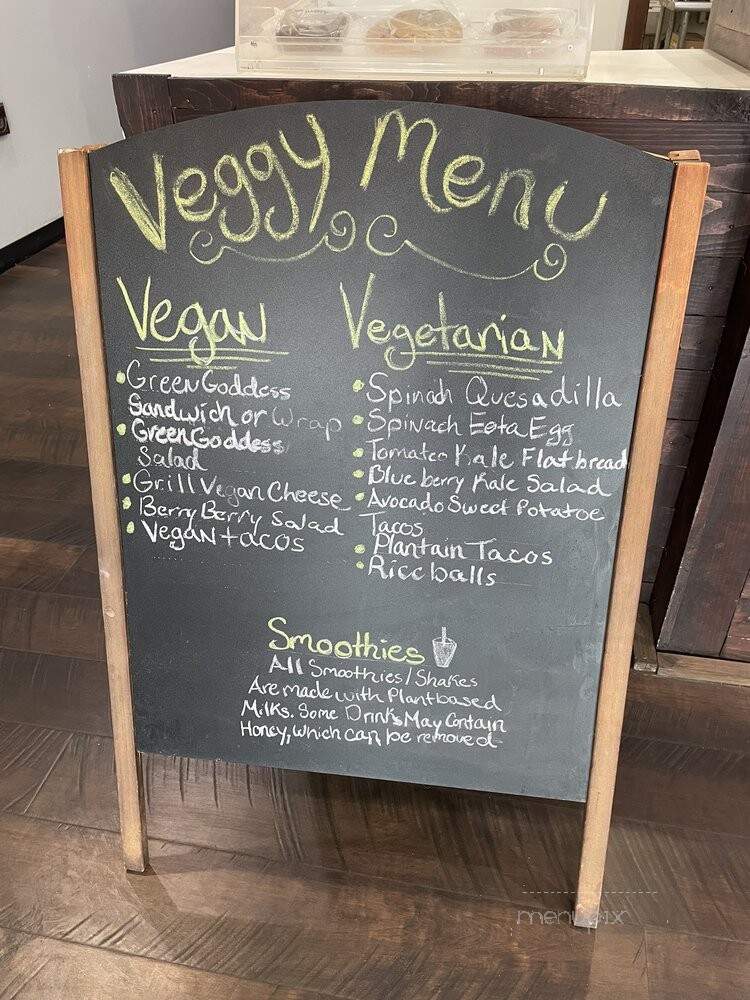 Veggy Menu
Vegan
Green Goddess
Sandwich or Wrap
Green Goddess
Salad
Grill Vegan Cheese
Berry Berry Salad
Vegan tacos
Vegetarian
Spinach Quesadilla
Spinach Feta Egg
Tomateo Kale Flatbread
Blueberry Kale Salad
Avocado Sweet Potatoe
Tacos
Plantain Tacos
Riceballs
Smoothies
All Smoothies/Shakes
Are made with Plantbased
Milks. Some Drinks May Contain
Honey, which can be removed
menupix